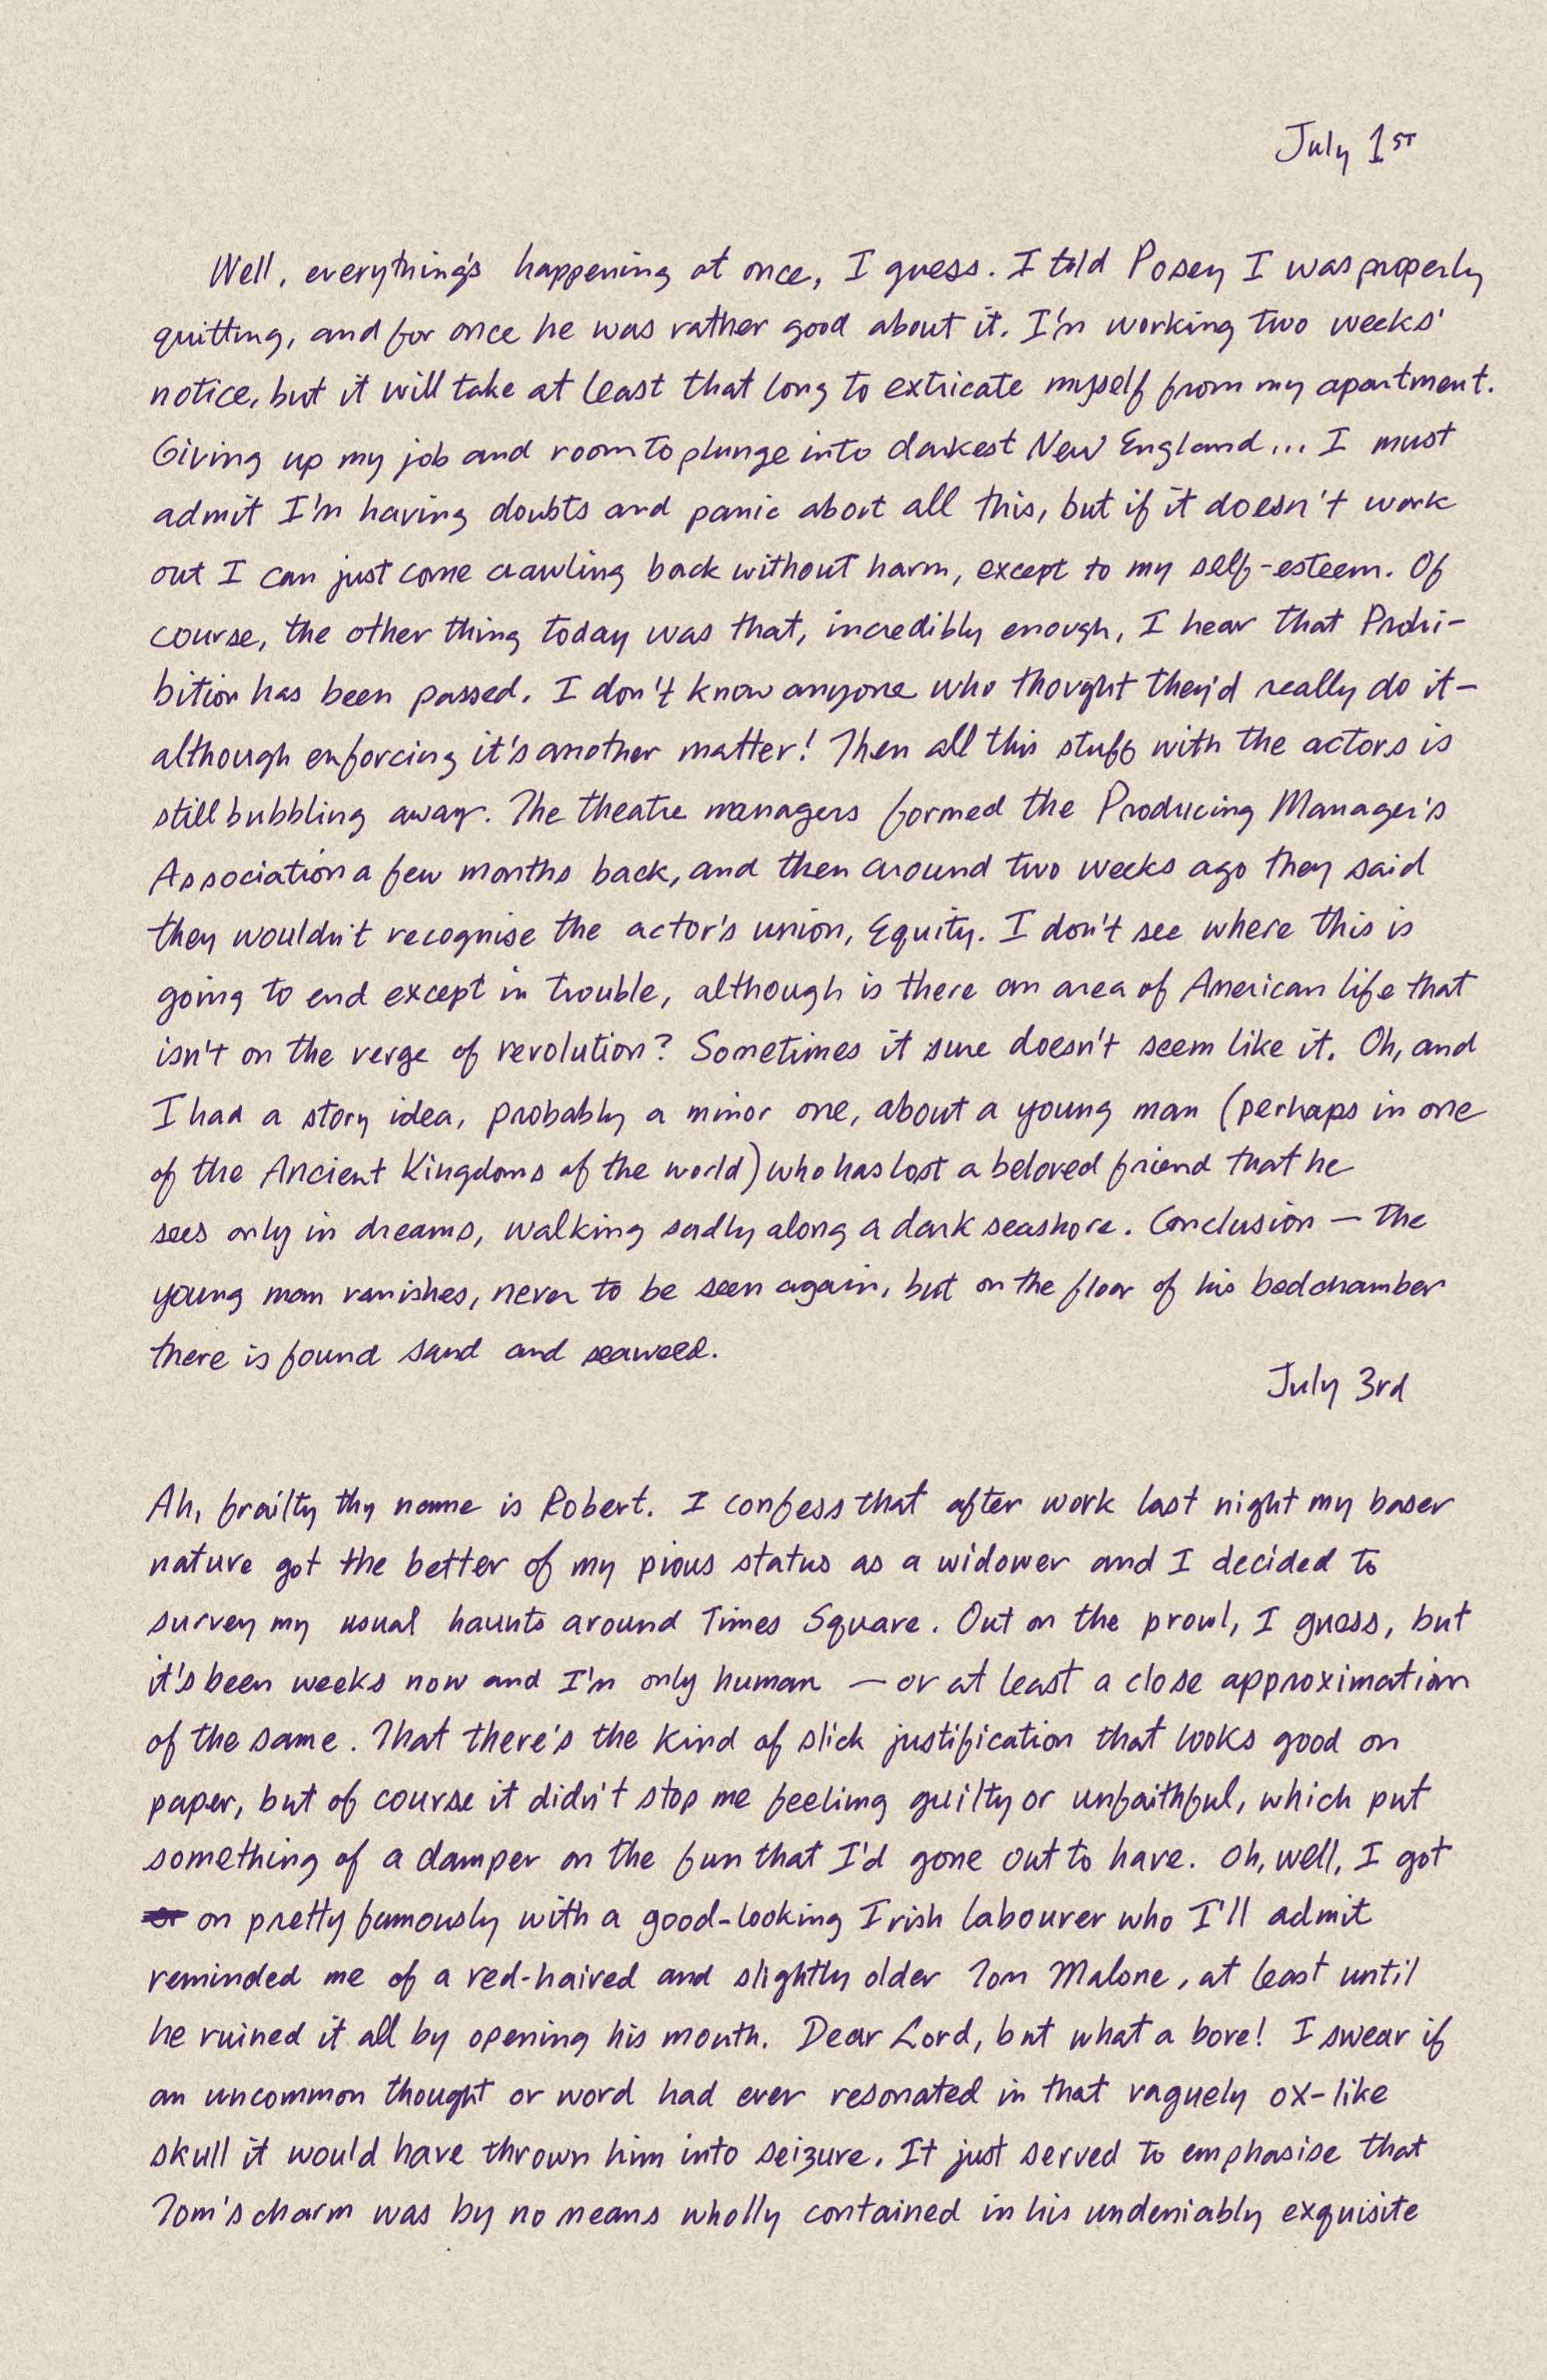 July 1ST
Well, everything's happening at once, I guess. I told Posey I was properly
quitting, and for once he was rather good about it. I'm working two weeks'
notice, but it will take at least that long to extricate myself from my apartment.
Giving up my job and room to plunge into darkest New England... I must
admit I'm having doubts and panic about all this, but if it doesn't work
out I can just come crawling back without harm, except to my self-esteem. Of
course, the other thing today was that, incredibly enough, I hear that Prohi-
bition has been passed. I don't know anyone who thought they'd really do it-
although enforcing it's another matter! Then all this stuff with the actors is
still bubbling away. The theatre managers formed the Producing Manager's
Association a few months back, and then around two weeks ago they said
they wouldn't recognise the actor's union, Equity. I don't see where this is
going to end except in trouble, although is there an area of American life that
isn't on the verge of revolution? Sometimes it sure doesn't seem like it. Oh, and
I had a story idea, probably a minor one, about a young man (perhaps in one
of the Ancient Kingdoms of the world) who has lost a beloved friend that he
sees only in dreams, walking sadly along a dark seashore. Conclusion — the
young man vanishes, never to be seen again, but on the floor of his bedchamber
there is found sand and seaweed.
July 3rd
Ah, frailty thy name is Robert. I confess that after work last night my baser
nature got the better of my pious status as a widower and I decided to
survey my usual haunts around Times Square. Out on the prowl, I guess, but
it's been weeks now and I'm only human — or at least a close approximation
of the same. That there's the kind of slick justification that looks good on
paper, but of course it didn't stop me feeling guilty or unfaithful, which put
something of a damper on the fun that I'd gone out to have. Oh, well, I got
on pretty famously with a good-looking Irish labourer who I'll admit
reminded me of a red-haired and slightly older Tom Malone, at least until
he ruined it all by opening his mouth. Dear Lord, but what a bore! I swear if
an uncommon thought or word had ever resonated in that vaguely ox-like
skull it would have thrown him into seizure. It just served to emphasise that
Tom's charm was by no means wholly contained in his undeniably exquisite